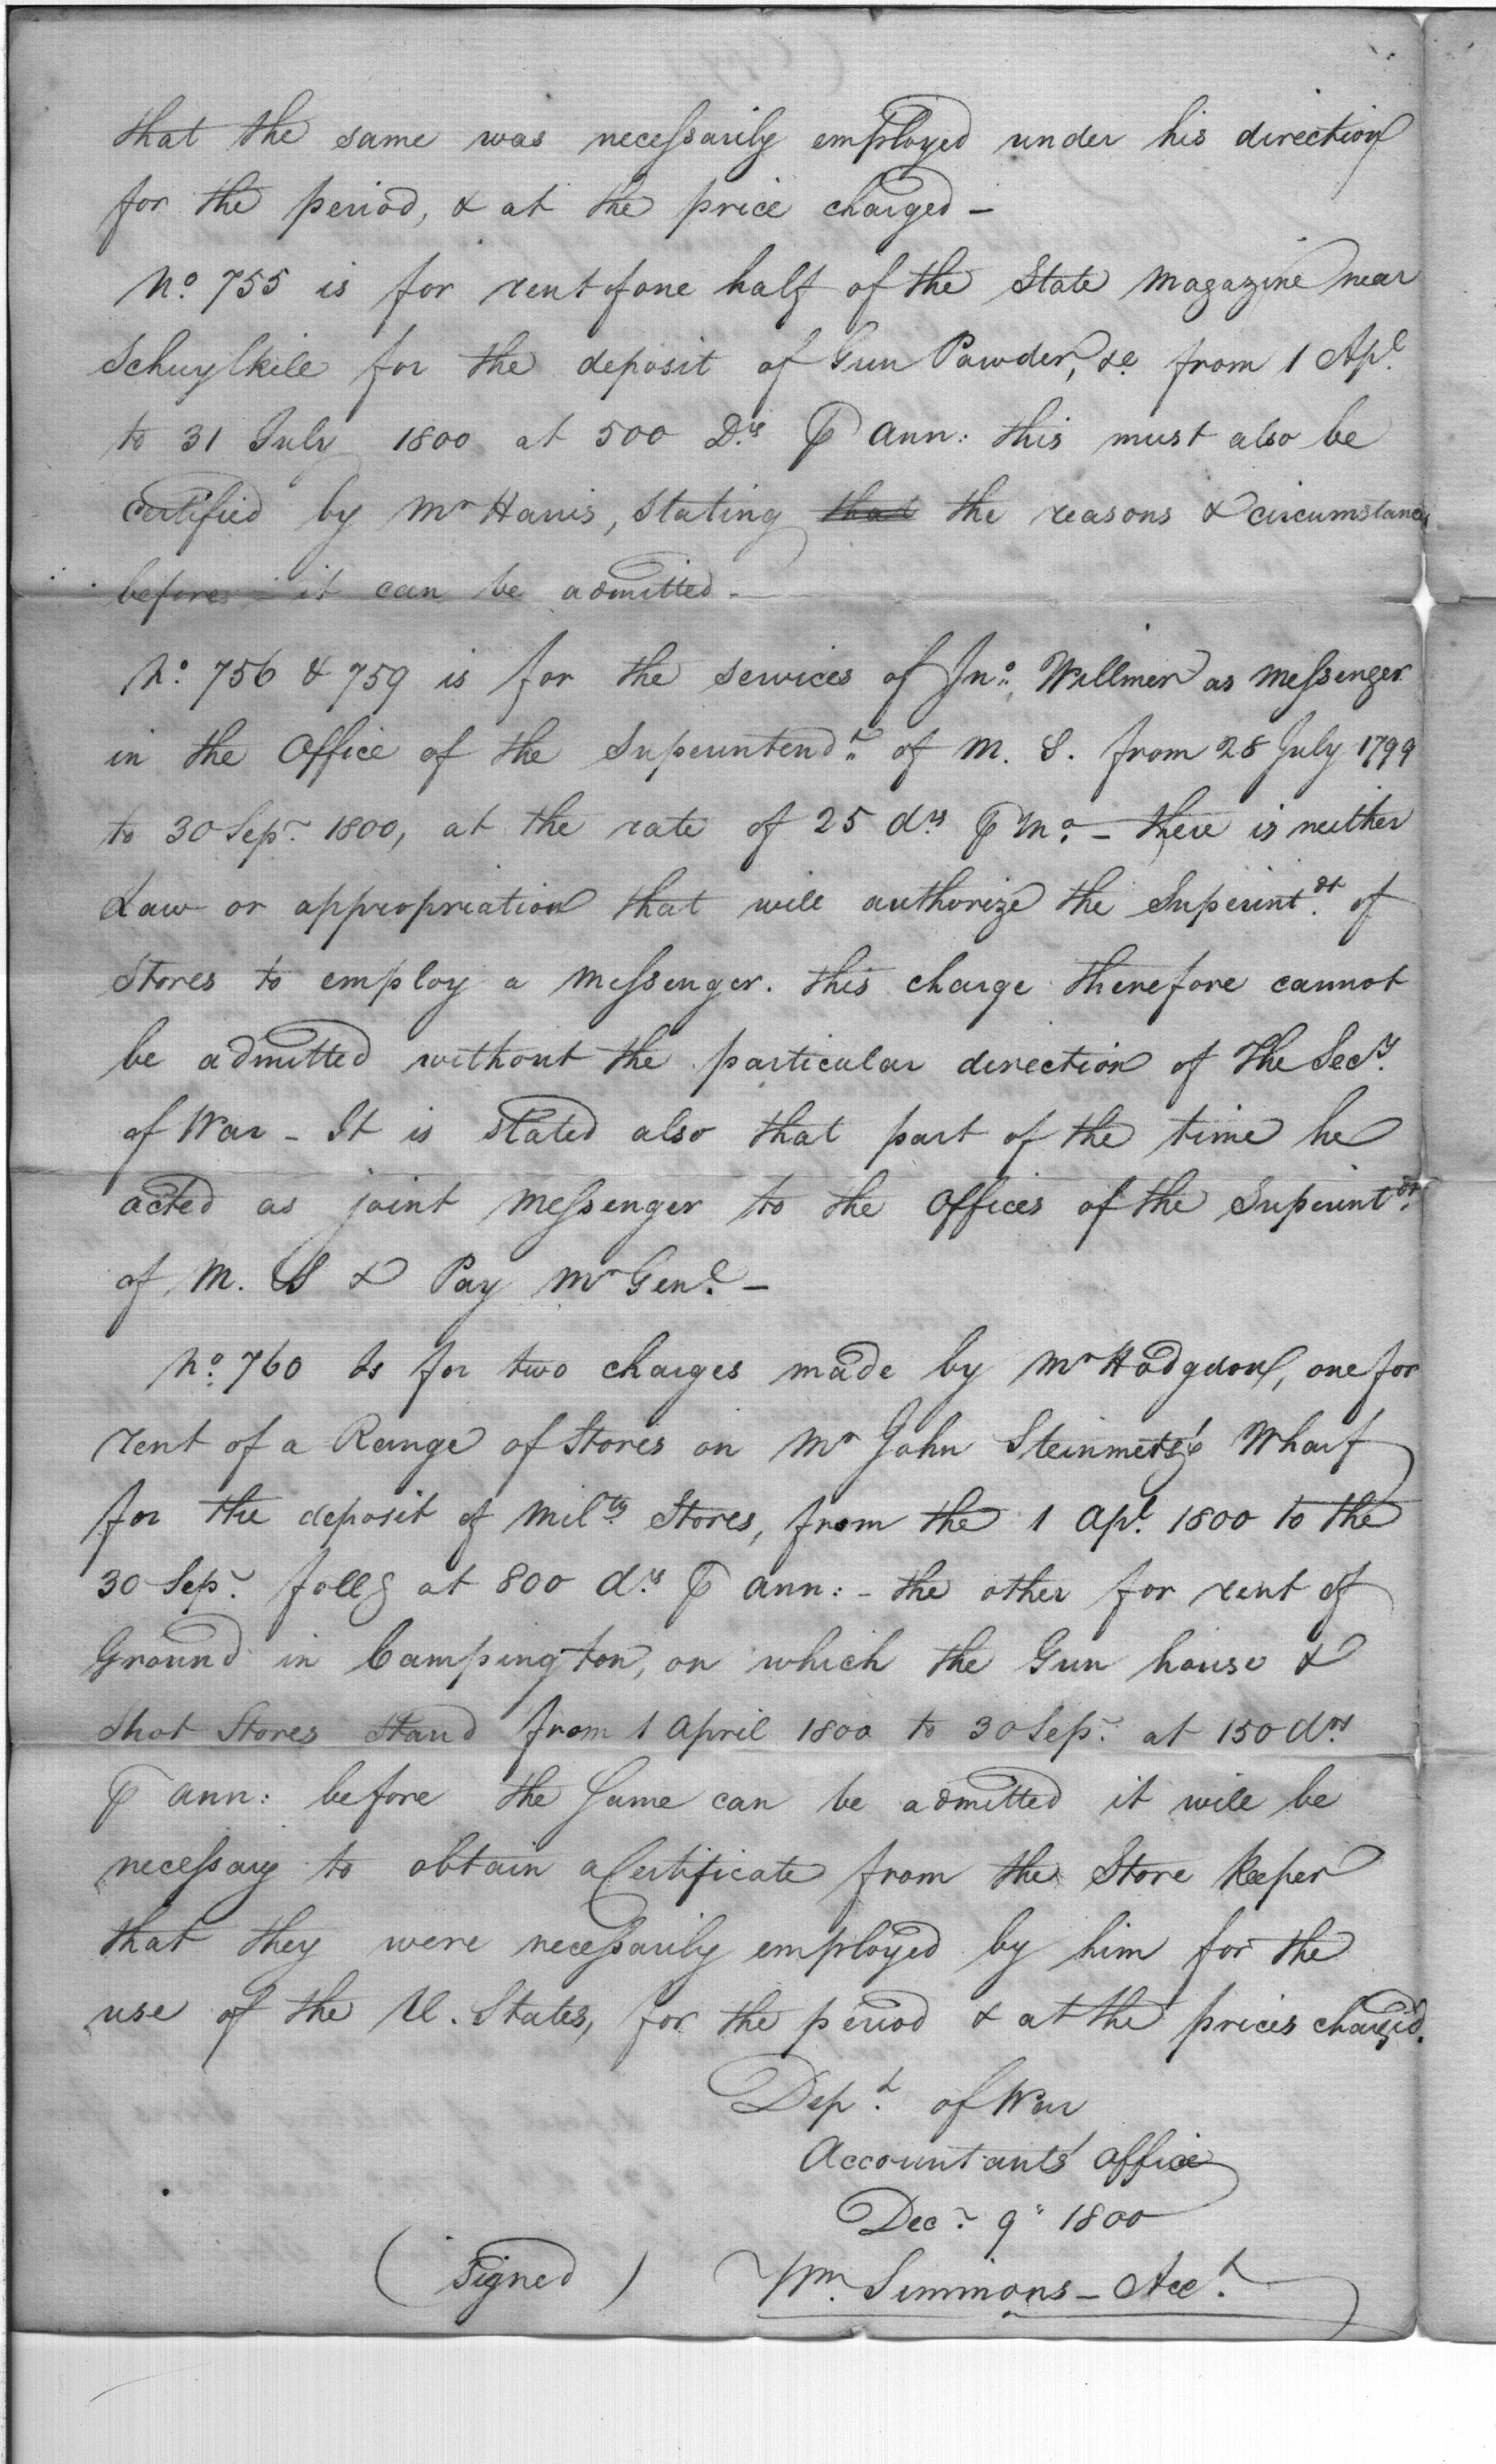 that the same was necessarily employed under his direction
for the period, & at the price charged –
No. 755 is for rent of one half of the State Magazine near
Schuylkill for the deposit of Gun Powder, &c from 1 Apl.
to 31 July 1800 at 500 D.rs ⅌ ann: this must also be
certified by Mr Harris, stating ~~that~~ the reasons & circumstances
before it can be admitted –
No. 756 & 759 is for the services of Jno. Willmer as Messenger
in the Office of the Superintendt. of M. S. from 28 July 1799
to 30 Sepr. 1800, at the rate of 25 d.rs ⅌ Mo. – there is neither
Law or appropriation that will authorize the Superintdt. of
Stores to employ a Messenger. this charge therefore cannot
be admitted without the particular direction of The Secy.
of War – It is stated also that part of the time he
acted as joint Messenger to the Offices of the Superintdt.
of M. S & Pay Mr Genl. –
No. 760 Is for two charges made by Mr Hodgdon, one for
rent of a Range of Stores on Mr John Steinmets's Wharf
for the deposit of Milty. Stores, from the 1 Apl. 1800 to the
30 Sepr. follg at 800 d.rs ⅌ ann: – the other for rent of
Ground in Campington, on which the Gun house &
Shot Stores stand from 1 April 1800 to 30 Sepr. at 150 d.rs
⅌ ann: before the same can be admitted it will be
necessary to obtain a Certificate from the Store Keeper
that they were necessarily employed by him for the
use of the U. States, for the period & at the prices charg'd.
Dept. of War
Accountants' office
Decr. 9th 1800
(Signed) Wm. Simmons – Acct.